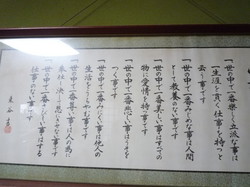 一世の中で一番楽しく立派な事は
一生涯を貫く仕事を持つと
云う事です
一世の中で一番みじめな事は人間
として教養のない事です
一世の中で一番美しい事はすべての
物に愛情を持つ事です
一世の中で一番悲しい事はうそを
つく事です
一世の中で一番みにくい事は他人の
生活をうらやむ事です
一世の中で一番尊い事は人の為に
奉仕し決して恩にきせない事です
一世の中で一番淋しい事はする
仕事のない事です